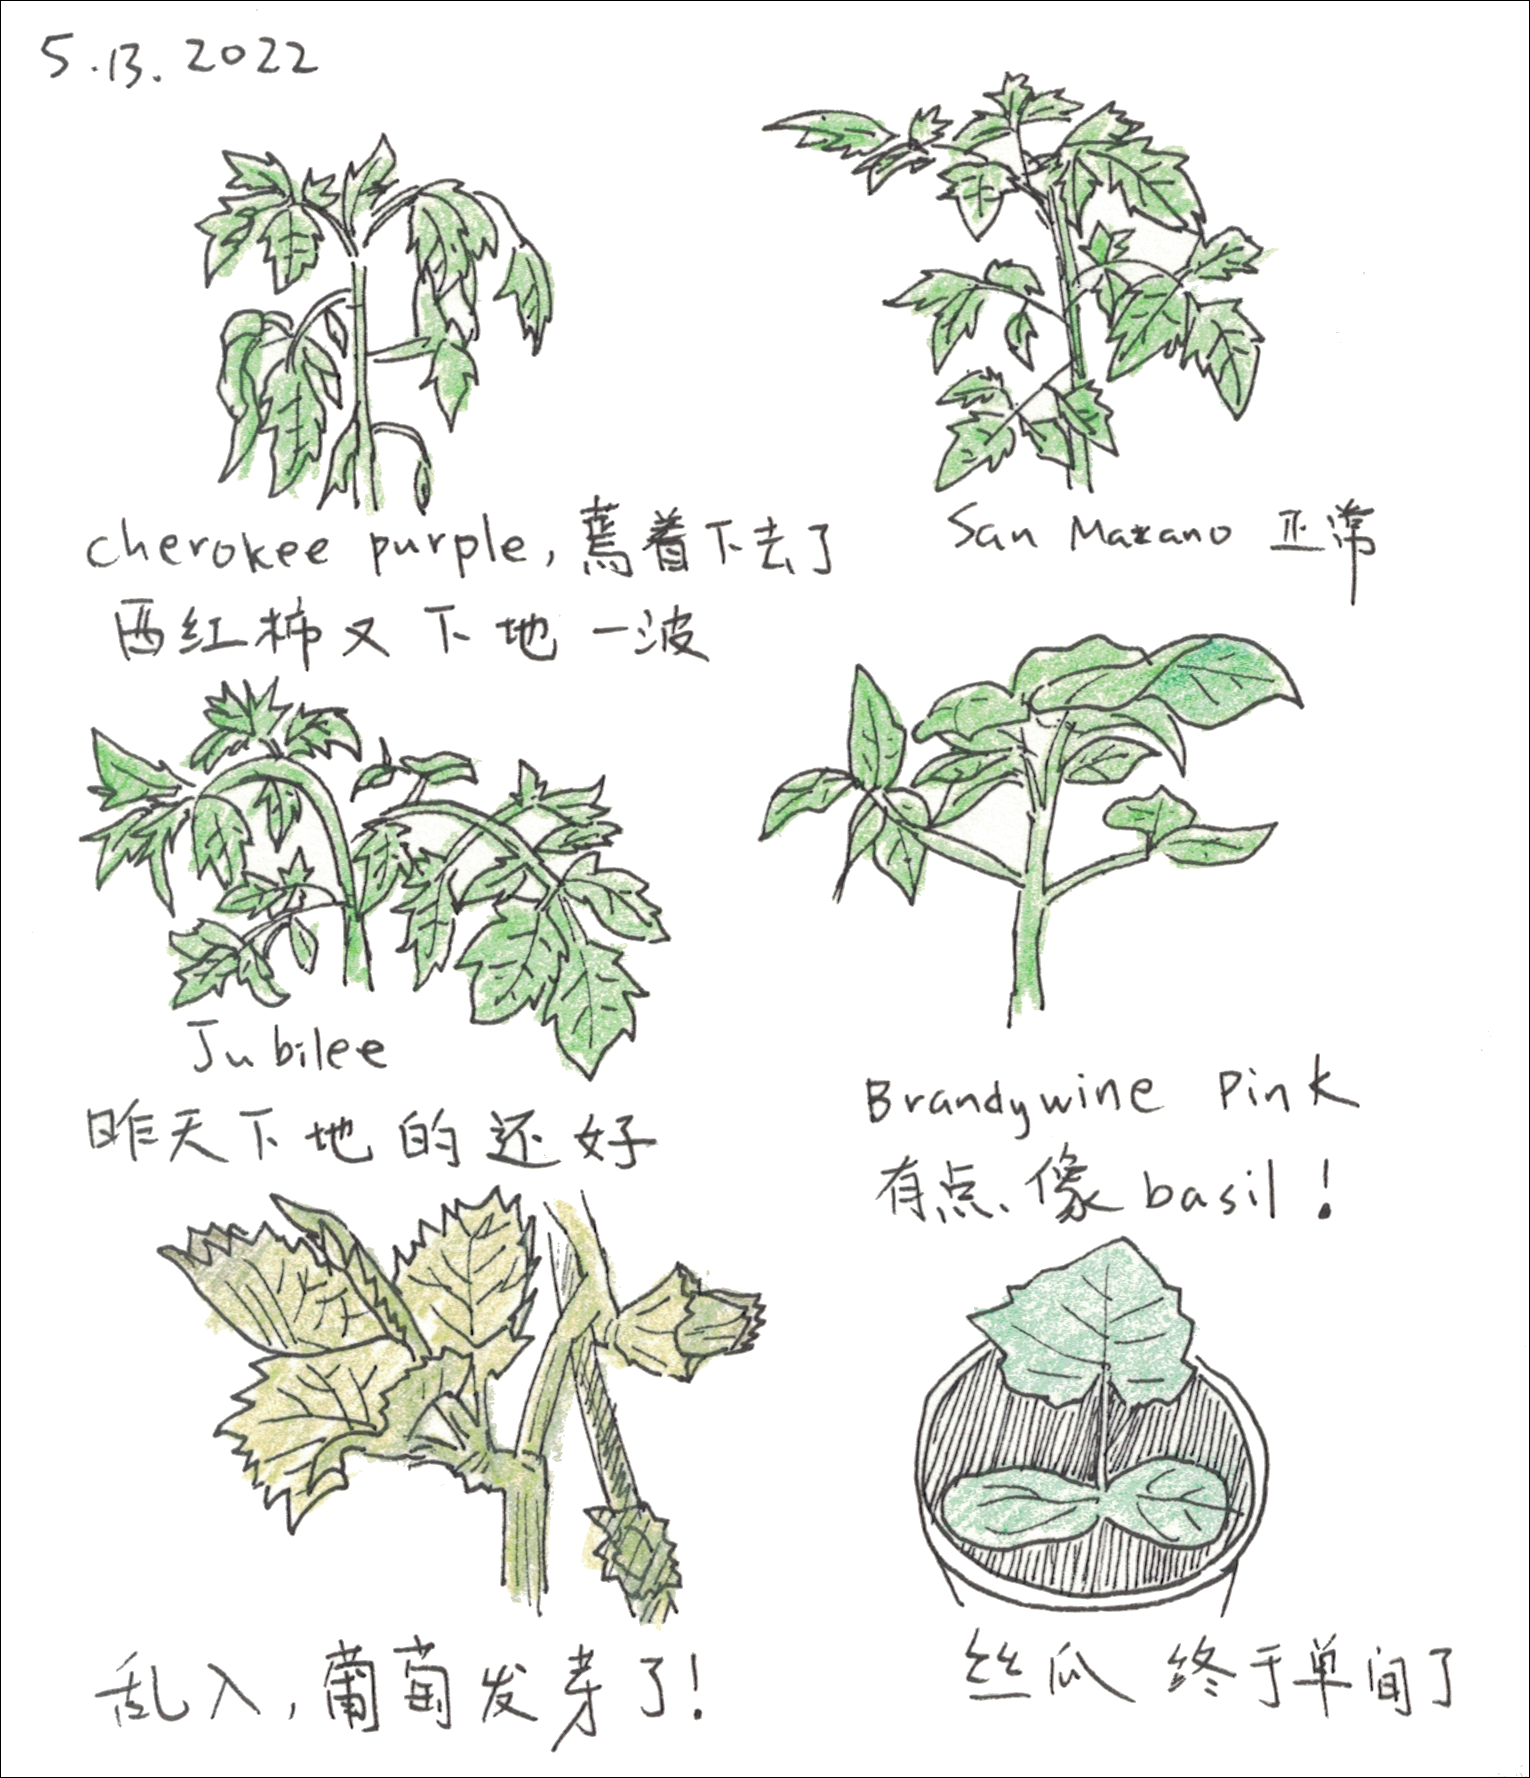 5.13.2022
cherokee purple, 蔫着下去了
西红柿又下地一波
San Marzano 正常
Jubilee
昨天下地的还好
Brandywine Pink
有点像 basil！
乱入，葡萄发芽了！
丝瓜 终于单间了